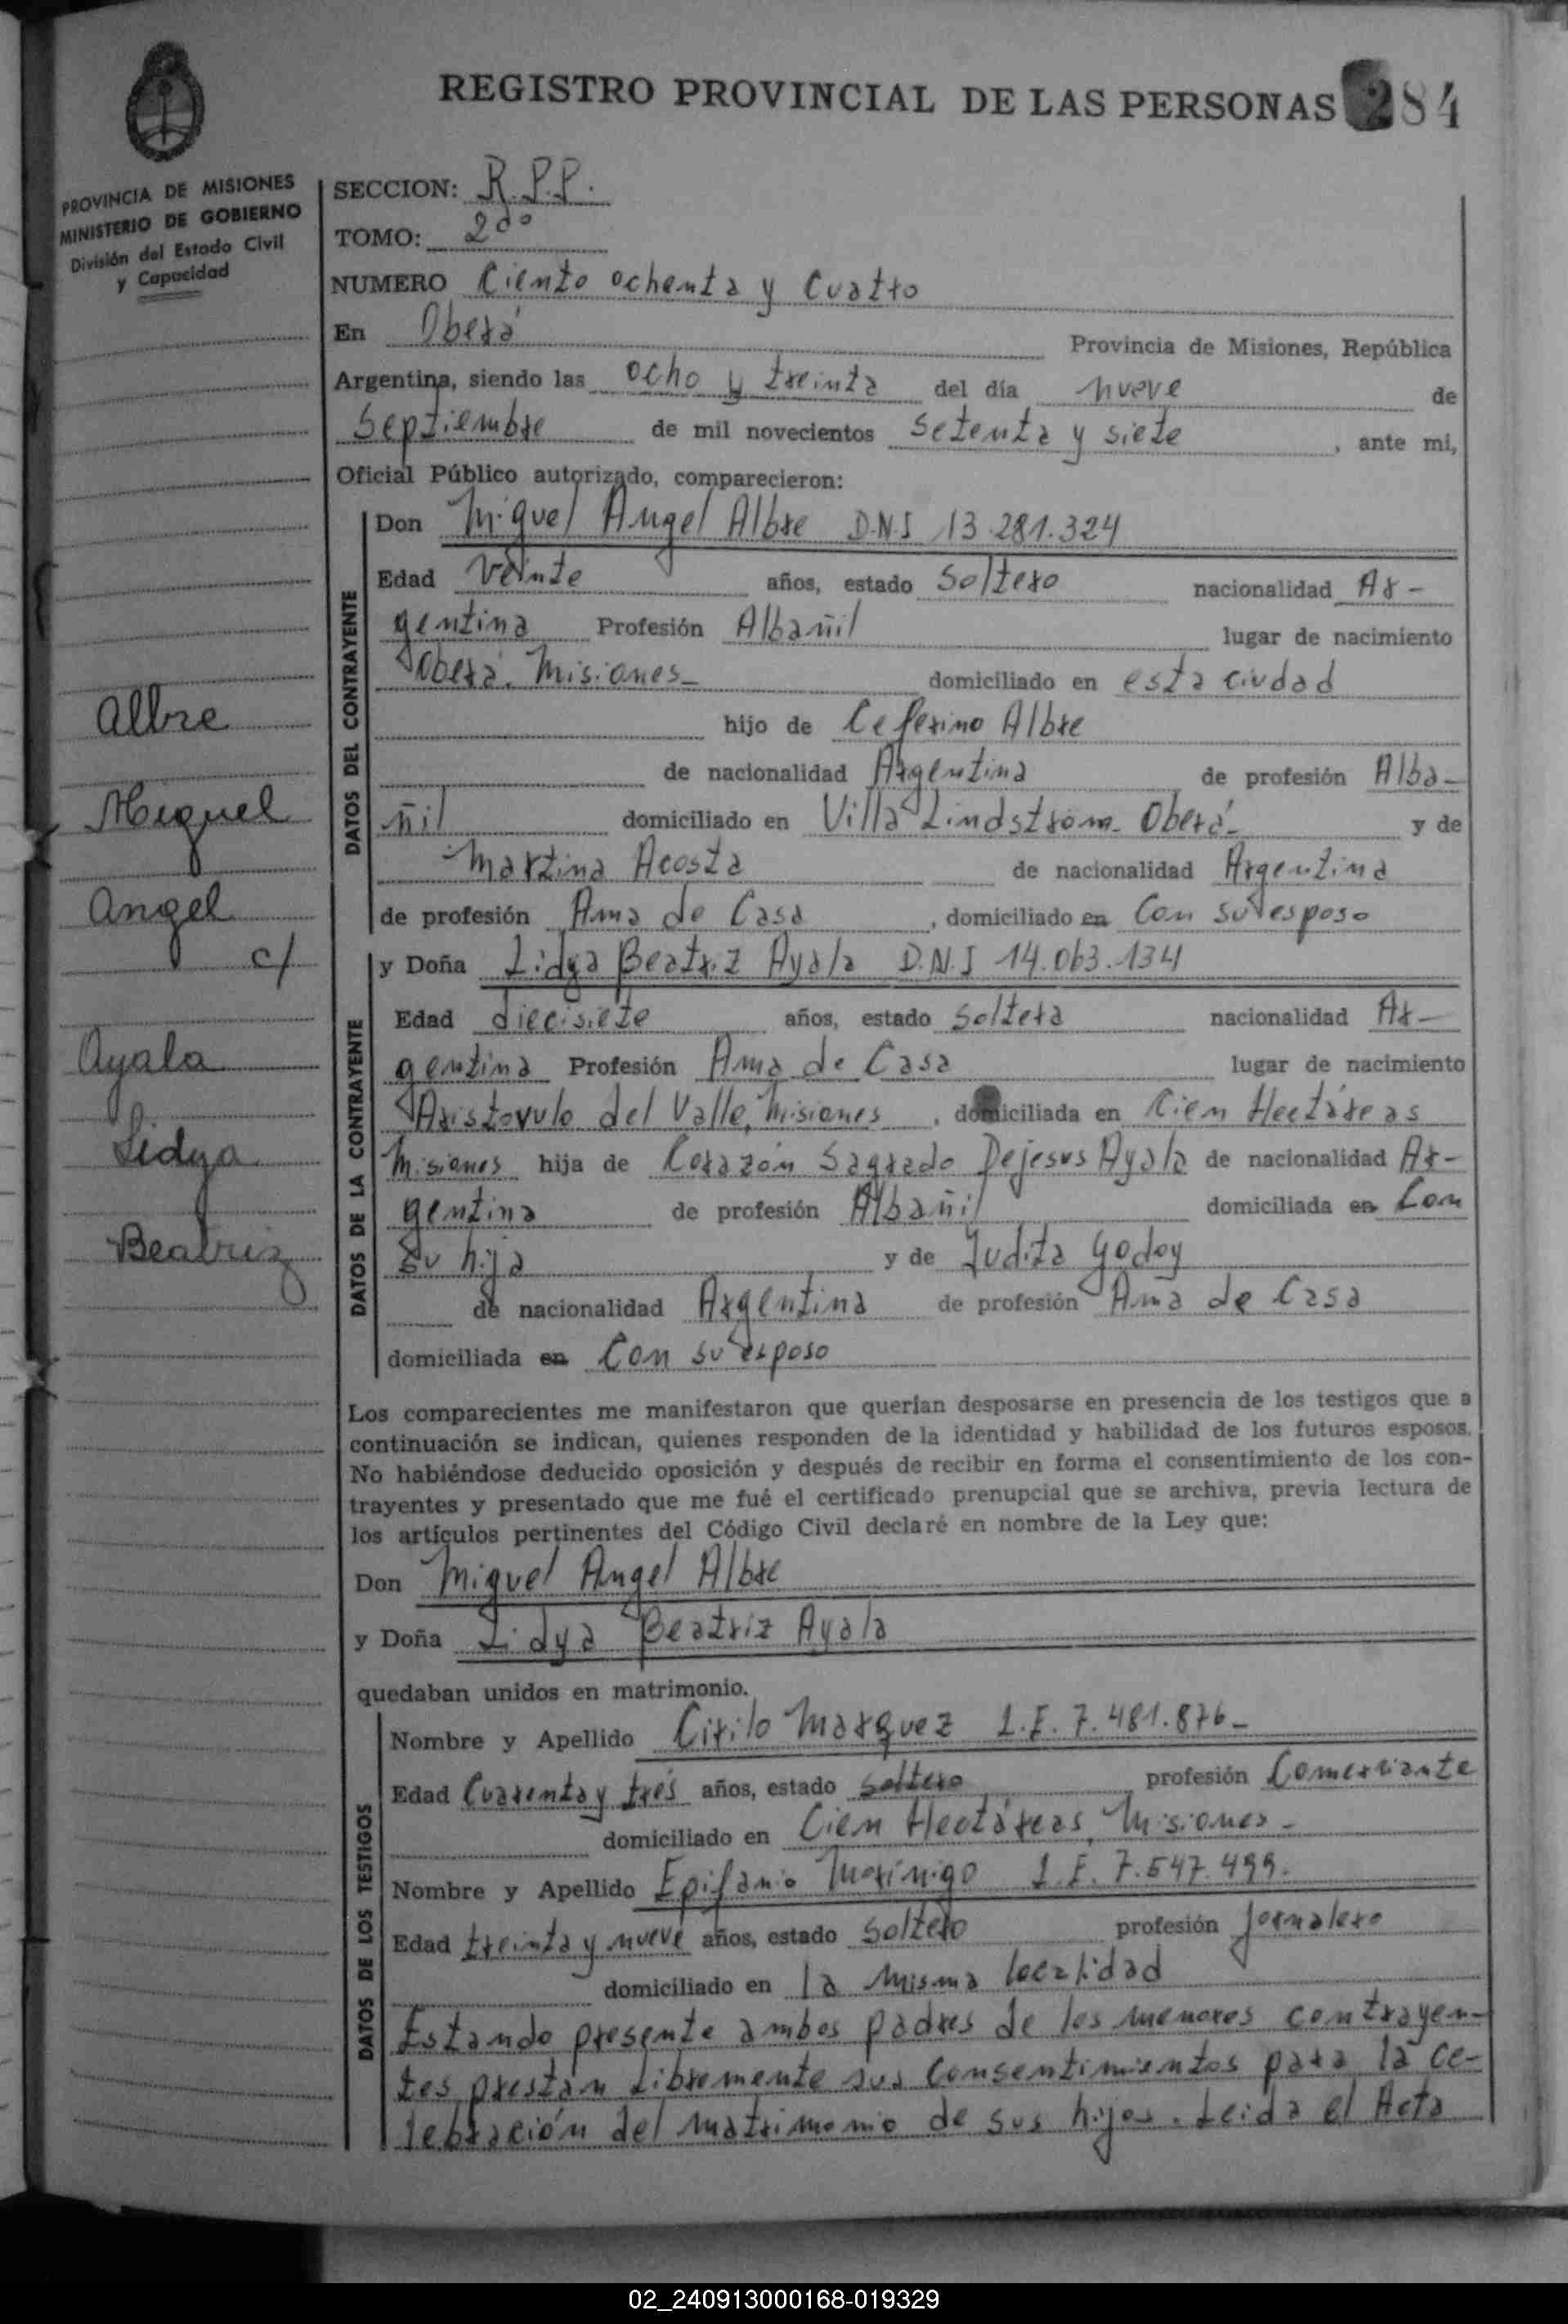 REGISTRO PROVINCIAL DE LAS PERSONAS 284
PROVINCIA DE MISIONES
MINISTERIO DE GOBIERNO
División del Estado Civil
y Capacidad
Albre
Miguel
Angel
c/
Ayala
Lidya
Beatriz
SECCION: R.P.P.
TOMO: 2do
NUMERO Ciento ochenta y cuatro
En Oberá Provincia de Misiones, República
Argentina, siendo las ocho y treinta del día nueve de
Septiembre de mil novecientos setenta y siete, ante mi,
Oficial Público autorizado, comparecieron:
DATOS DEL CONTRAYENTE
Don Miguel Angel Albre D.N.I 13.281.324
Edad Veinte años, estado Soltero nacionalidad Ar-
gentina Profesión Albañil lugar de nacimiento
Oberá. Misiones_ domiciliado en esta ciudad
hijo de Ceferino Albre
de nacionalidad Argentina de profesión Alba-
ñil domiciliado en Villa Lindstrom. Oberá- y de
Martina Acosta de nacionalidad Argentina
de profesión Ama de Casa, domiciliado en Con su esposo
DATOS DE LA CONTRAYENTE
y Doña Lidya Beatriz Ayala D.N.I 14.063.134
Edad diecisiete años, estado Soltera nacionalidad Ar-
gentina Profesión Ama de Casa lugar de nacimiento
Aristovulo del Valle, Misiones, domiciliada en Cien Hectáreas
Misiones hija de Corazón Sagrado Dejesus Ayala de nacionalidad Ar-
gentina de profesión Albañil domiciliada en Con
su hija y de Judita Godoy
de nacionalidad Argentina de profesión Ama de Casa
domiciliada en Con su esposo
Los comparecientes me manifestaron que querían desposarse en presencia de los testigos que a
continuación se indican, quienes responden de la identidad y habilidad de los futuros esposos.
No habiéndose deducido oposición y después de recibir en forma el consentimiento de los con-
trayentes y presentado que me fué el certificado prenupcial que se archiva, previa lectura de
los artículos pertinentes del Código Civil declaré en nombre de la Ley que:
Don Miguel Angel Albre
y Doña Lidya Beatriz Ayala
quedaban unidos en matrimonio.
DATOS DE LOS TESTIGOS
Nombre y Apellido Cirilo Marquez L.E. 7.481.876-
Edad Cuarenta y trés años, estado soltero profesión Comerciante
domiciliado en Cien Hectáreas, Misiones-
Nombre y Apellido Epifanio Marínigo L.E. 7.547.499.
Edad treinta y nueve años, estado soltero profesión Jornalero
domiciliado en la misma localidad
Estando presente ambos padres de los menores contrayen-
tes prestan libremente sus consentimientos para la ce-
lebración del matrimonio de sus hijos. Leida el Acta
02_240913000168-019329